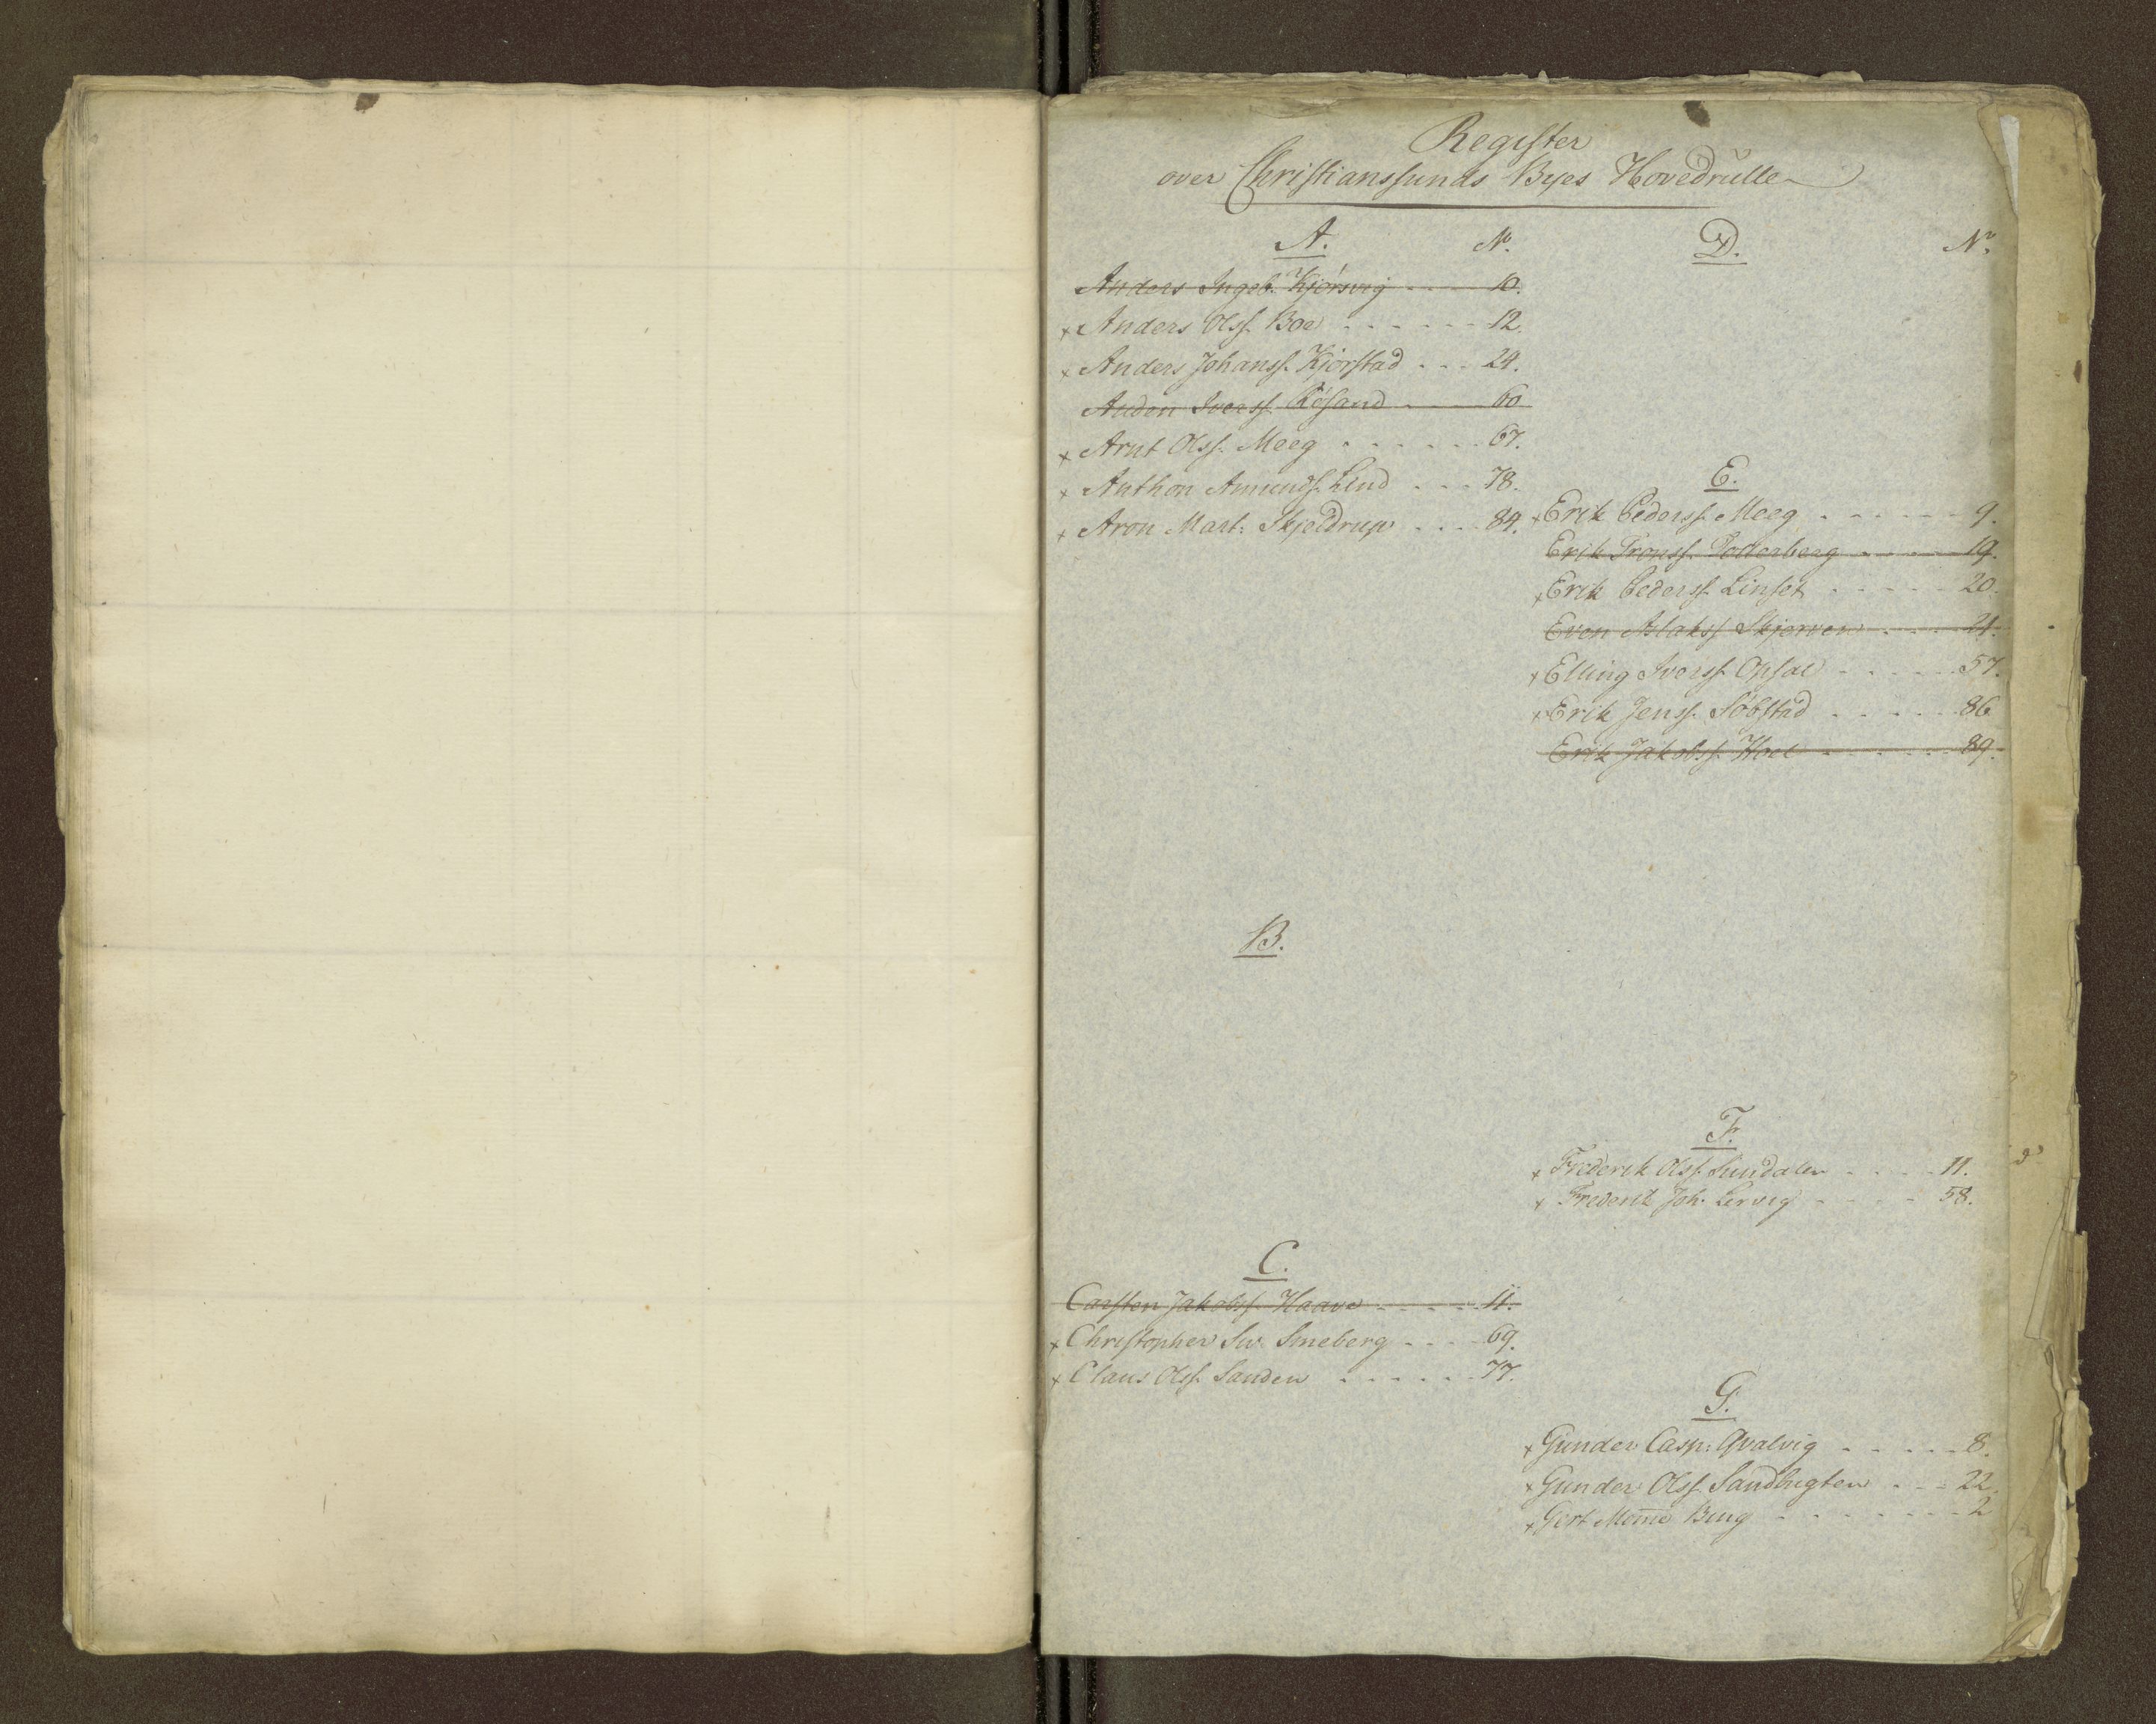 Register
over Christianssunds Byes Hovedrulle
A. No.
Anders Ingeb. Kjörsvig - - - 10.
x Anders Olss. Boe - - - - - - 12.
x Anders Johanss. Kjörstad - - - 24.
Auden Iverss. Rösand - - - 60
x Arnt Olss. Meeg - - - - - - 67.
x Anthon Amunds. Lund - - - 78.
x Aron Mart: Skjeldrup - - - - 84.
B.
C.
Carsten Jakobss. Haave - - - - - 11.
x Christopher Sv. Smeberg - - - - 69.
x Claus Olss. Sanden - - - - - - 77.
D. No.
E.
x Erik Pederss. Meeg - - - - - - 9.
Erik Tronss. - - - - - 19.
x Erik Pederss. Linset - - - - - 20.
Even Aslakss. Skjerven - - - 21.
x Elling Iverss. Opsal - - - - - 57.
x Erik Jenss. Söbstad - - - - - 86
Erik Jakobss. Hoel - - - - - - 89.
F.
x Frederik Olss. Sundalen - - - - 11.
x Frederik Joh. Lervig - - - - - 58.
G.
x Gunder Casp: Qvalvig - - - - - 8.
x Gunder Olss. Sandbugten - - - 22.
x Gert Bing - - - - - - - - 2